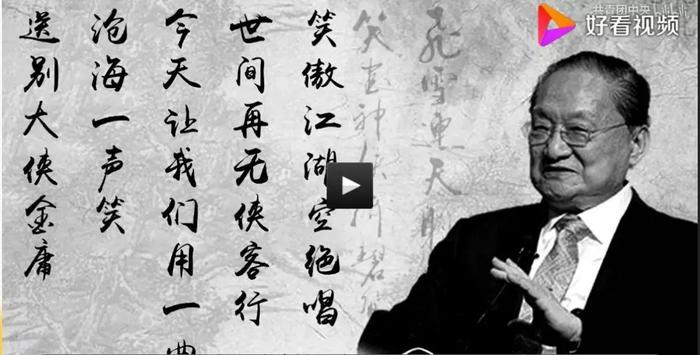 共青团中央
好看视频
飞雪连天
笑书神侠倚碧
笑傲江湖空绝唱
世间再无侠客行
今天让我们用一曲
沧海一声笑
送别大侠金庸